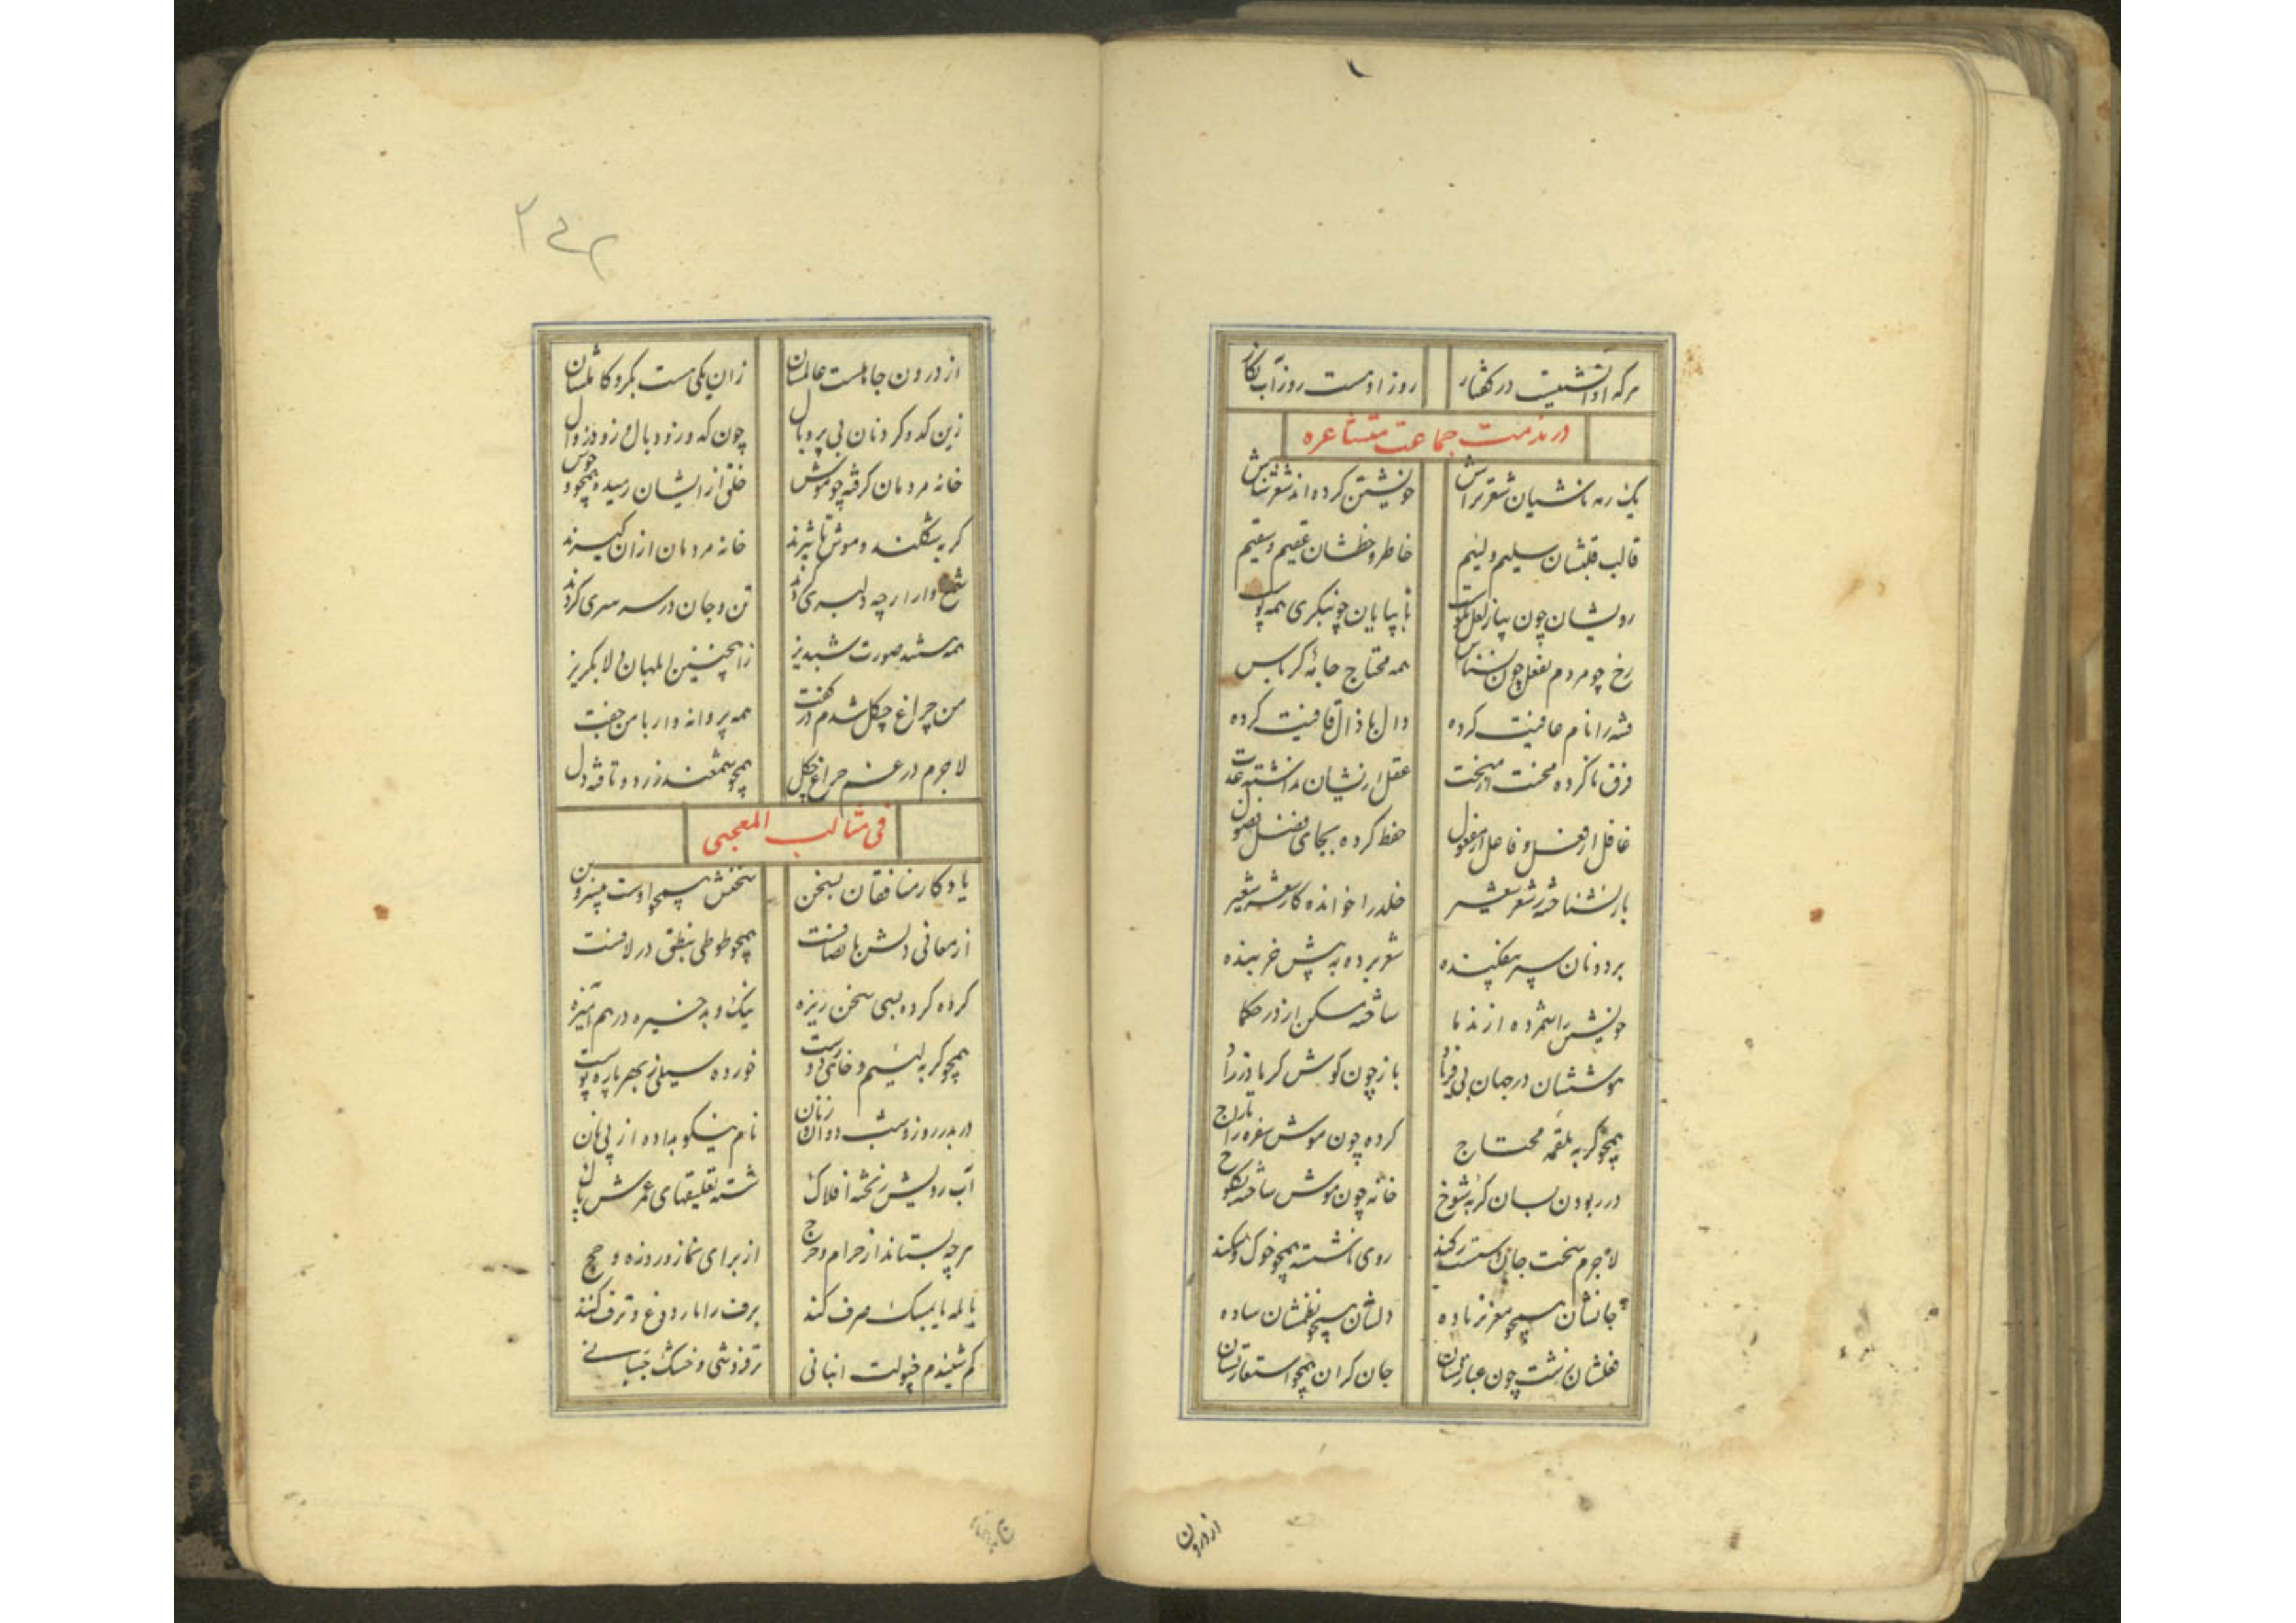 هرکه او نیست در گفتار روز او هست روز آب نگار
در مذمت جماعت متشاعره
یک رمه ناشیان شعرتراش خویشتن کرده‌اند شعر شناش
قالب قلبشان سلیم و لئیم خاطر و خطشان عقیم و سقیم
رویشان چون پیاز لعل نکوست تا بپایان چو بنگری همه پوست
رخ چو مردم بفعل چون نسناس همه محتاج جامهٔ کرباس
فتنه را نام عافیت کرده دال با ذال قافیت کرده
فرق ناکرده محنت از منحت عقل ازیشان
غافل از فعل و فاعل از مفعول حفظ کرده بجای فضل فضول
باز نشناخته ز شعر شعیر خلد را خوانده گاه شعر سعیر
بر دونان سپر بیفکنده شعر برده به پیش خربنده
خویشتن را شمرده از ندما ساخته مسکن از در حکما
موششان در جهان بی‌فریاد باز چون گوش گربه
همچو گربه بلقمه محتاج کرده چون موش سفره را تاراج
در ربودن بسان گربه شوخ خانه چون موش ساخته بکلوخ
لاجرم سخت جان و سست رگند روی ناشسته همچو خوک و سگند
جانشان همچو مغز ناده دلشان همچو نظمشان ساده
فعلشان زشت چون عبارتشان جان گران همچو استعارتشان
از درون
۲۴۲
از درون جاهلست عالمشان زان یکی هست بکر و کابلشان
زین که و گردنان بی پر و بال چون که ورزو وبال و زود زوال
خانه مردمان گرفته چو موش خلق ازایشان رمیده همچو وحوش
گربه شکلند و موش تا شیرند خانه مردمان ازان گیرند
شمع وار ارچه دلبری کردند تن و جان در سر سری کردند
همه هستند صورت شبدیز زاینچنین ابلهان دلا بگریز
من چراغ چگل شدم در گفت همه پروانه وار با من جفت
لاجرم در غم چراغ چگل همچو شمعند زرد و تافته دل
فی مثالب المعجبی
یادگار منافقان بسخن سخنش همچو اوست بی سر و بن
از معانی دلش با نصافست همچو طوطی بنطق در لافست
گرده کرده بسی سخن ریزه نیک و بد خیره درهم آمیزه
همچو گربه لئیم و خائن دوست خورده سیلی ز بهر پاره پوست
دربدر روز و شب دوان و زنان نام نیکو بداده از پی نان
آب رویش ریخته افلاک شسته تعلیقهای عمرش پاک
هرچه بستاند از حرام و حرج از برای نماز و روزه و حج
یا بلمه یا بمیسک صرف کند برف را بار دوغ و ترف کند
کم شنیدم چو لت انبانی تر فروشی و خشک جنبانی